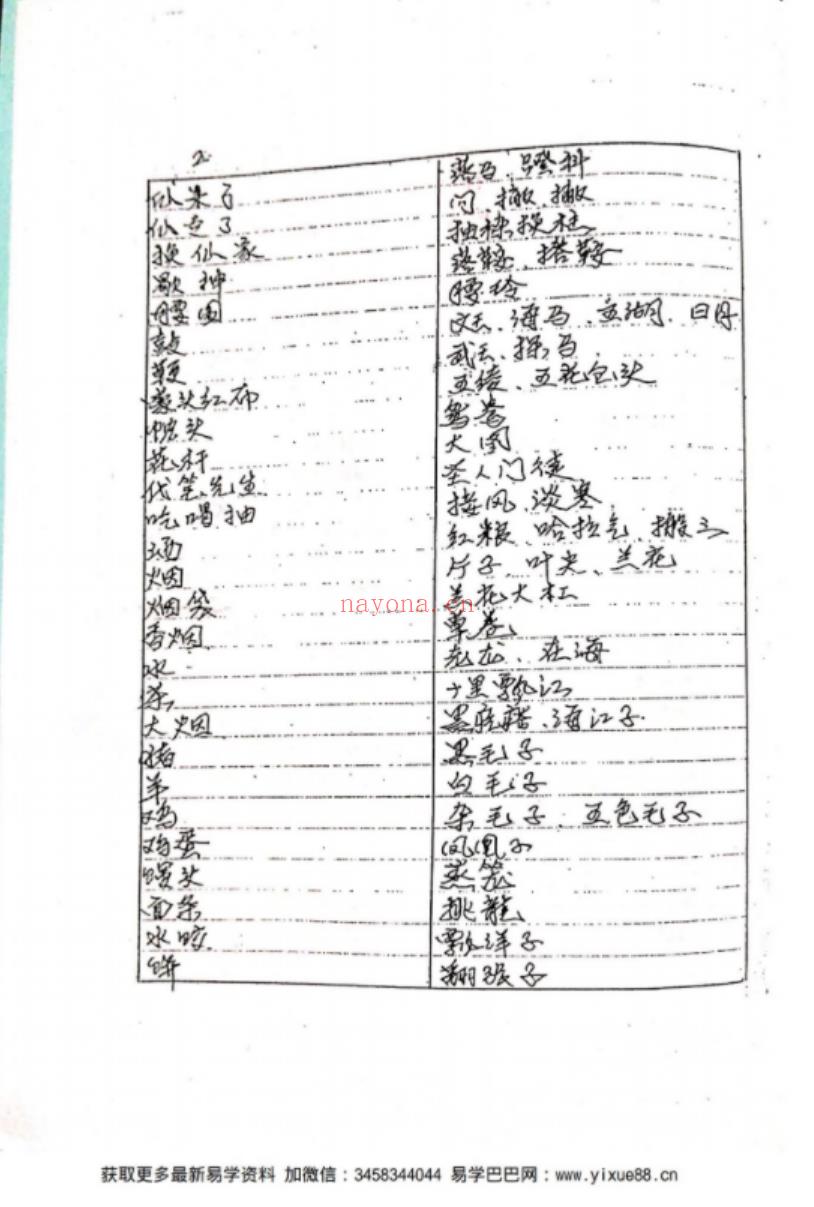 2.
仙来了 落马、蹬科
仙走了 问 撤 撤
换仙家 抽梁换柱
歇神 落鞍、搭鞍
腰 腰铃
鼓 文王、海马、日月
鞭 武王、探马
蒙头红布 五绫、五花包头
枕头 鸳鸯
花杆 大
代笔先生 圣人门徒
吃喝抽 接风、淡寒
酒 红粮、哈拉气、搬三
烟 片子、叶尖、兰花
烟袋 兰花大杠
香烟 草卷
水 老龙、在海
茶 十里飘江
大烟 黑、海江子
猪 黑毛子
羊 白毛子
鸡 杂毛子、五色毛子
鸡蛋 凤凰子
馒头 蒸笼
面条 挑龍
水饺 飘洋子
饼 翻张子
nayona.cn
获取更多最新易学资料 加微信：3458344044 易学巴巴网：www.yixue88.cn